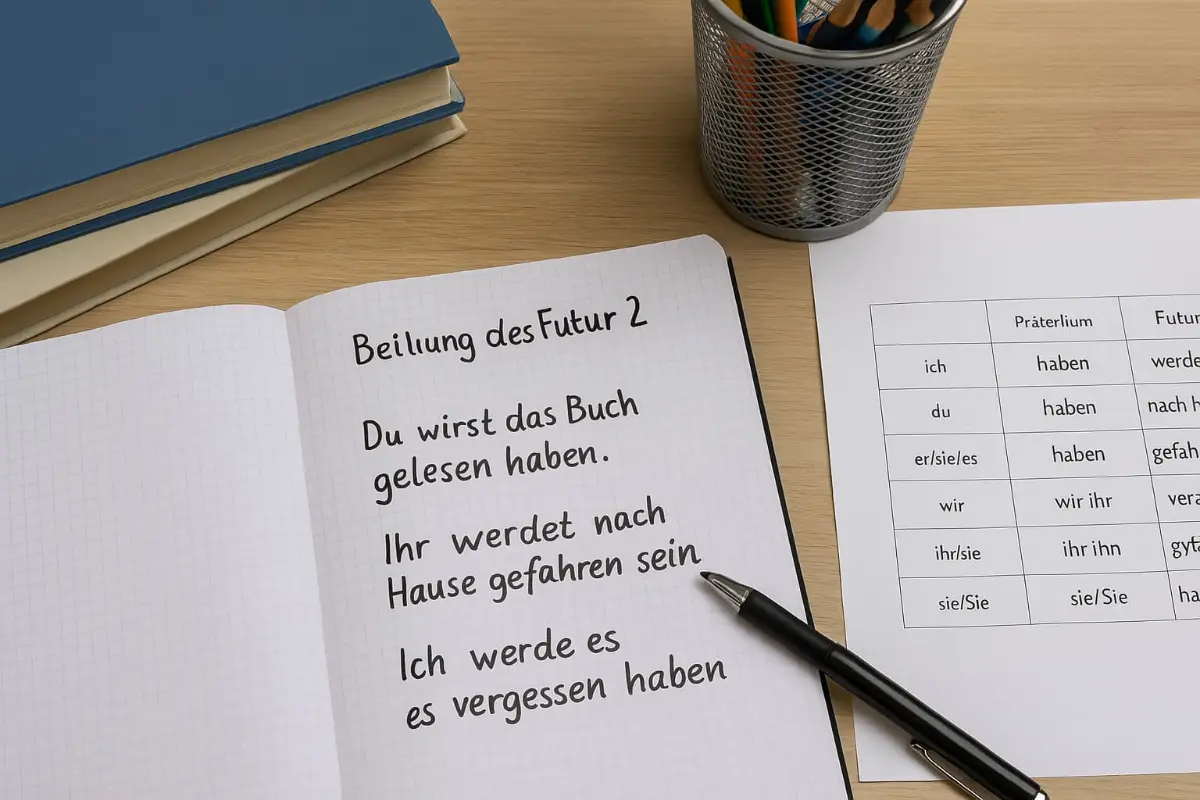 Beiluung des Futur 2
Du wirst das Buch
gelesen haben.
Ihr werdet nach
Hause gefahren sein
Ich werde es
es vergessen haben
Präterlium Futur
ich haben werde
du haben nach h
er/sie/es haben gefah
wir wir ihr vera
ihr/sie ihr ihn
sie/Sie sie/Sie ha